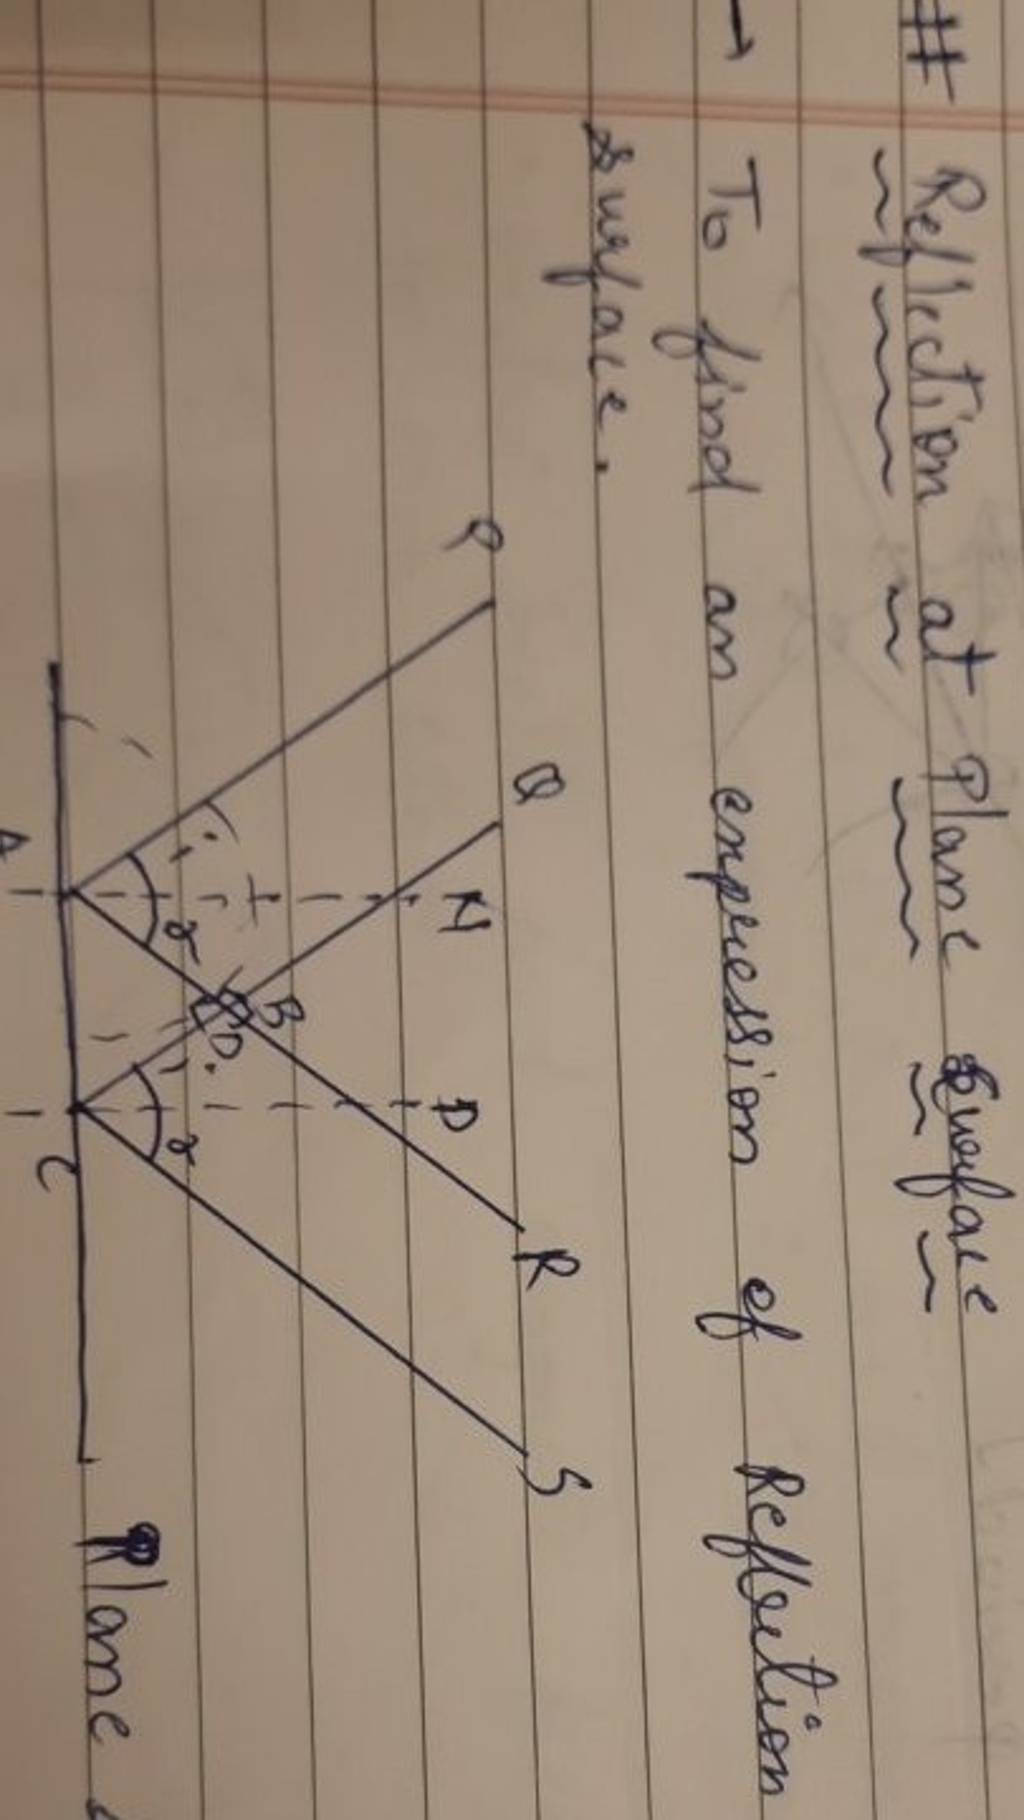 # Reflection at Plane Surface
→ To find an expression of Reflection
surface.
P
Q
N
D
R
S
i
r
B
D
i
r
A
C
Plane